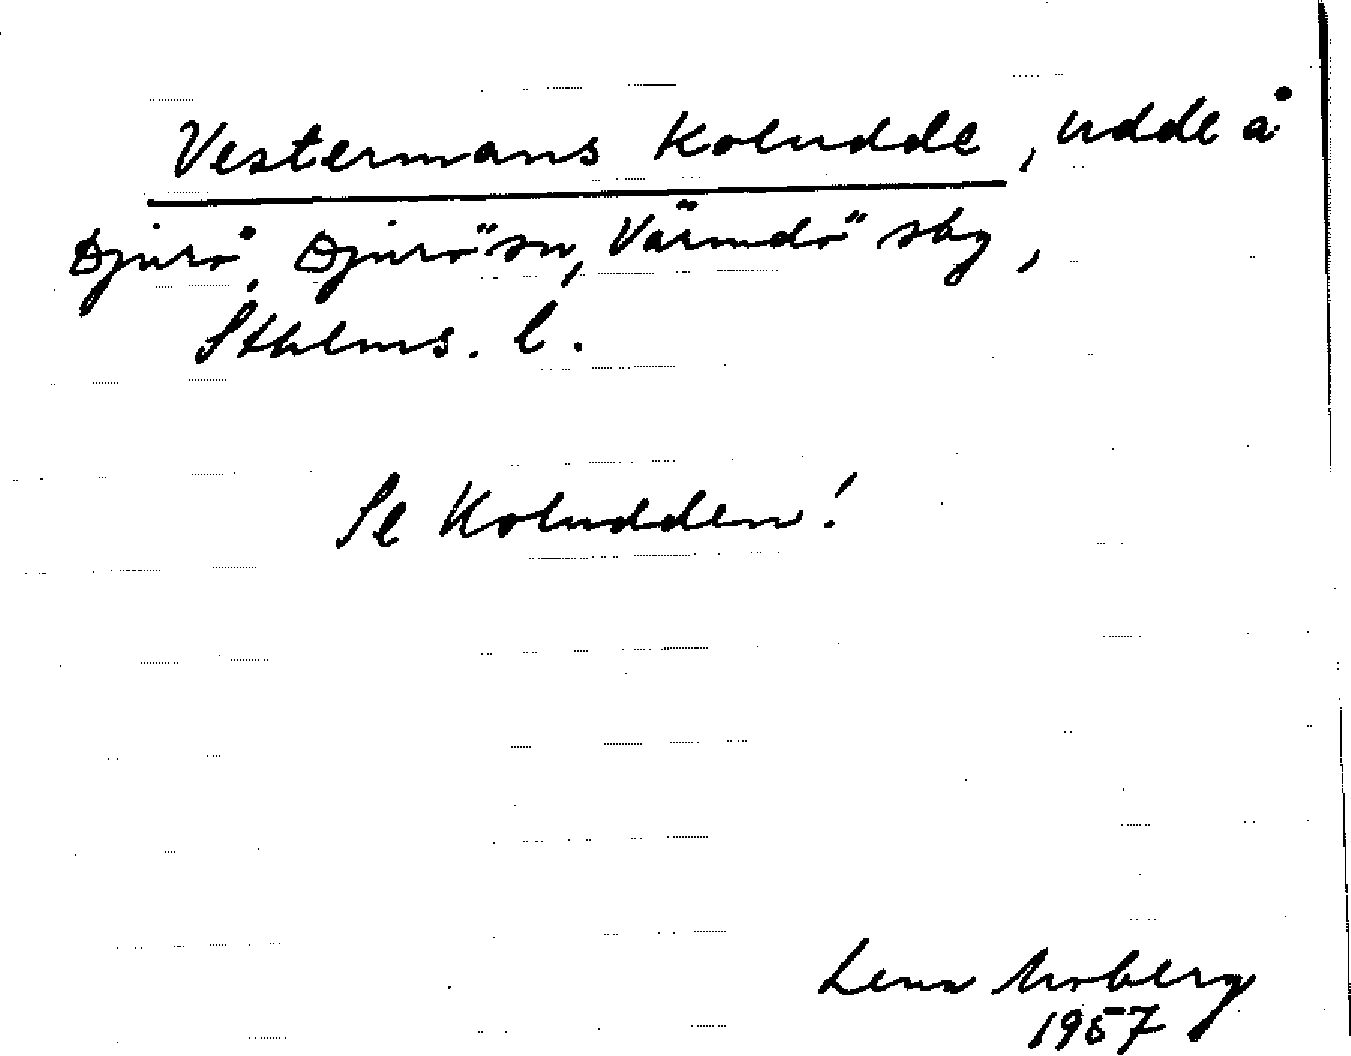 Vestermans Koludde, udde å
Djurö, Djurö sn, Värmdö sbg,
Sthlms. l.
Se Koludden!
Lena Moberg
1957